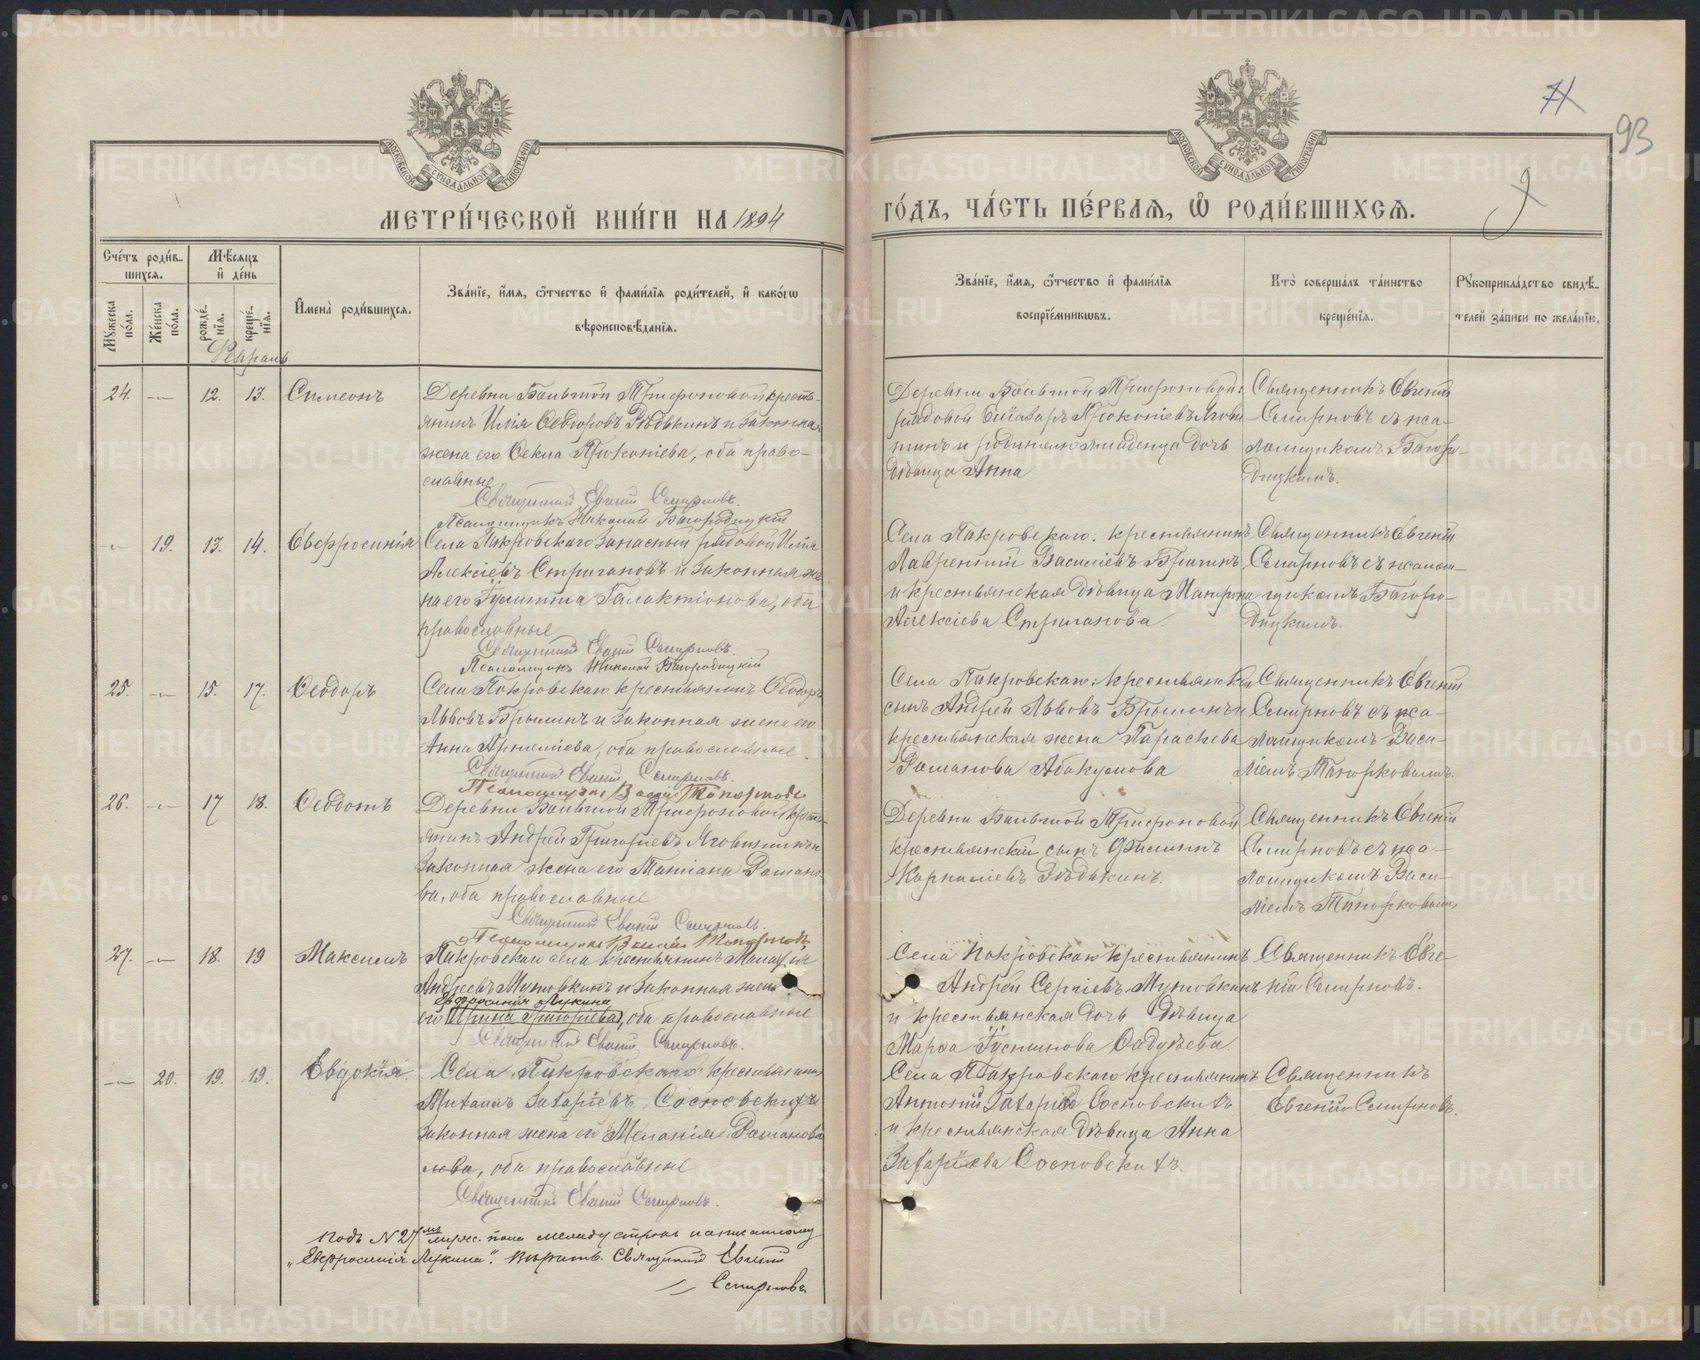 METRIKI.GASO-URAL.RU
93
МЕТРИ́ЧЕСКОЙ КНИ́ГИ НА 1894 ГО́ДЪ, ЧА́СТЬ ПЕ́РВАЯ, Ѽ РОДИ́ВШИХСЯ.
Сче́тъ роди́вшихся.
Му́жеска по́ла.
Же́нска по́ла.
Мѣ́сяцъ и҆ де́нь
рожде́нїя.
креще́нїя.
И҆мена̀ роди́вшихся.
Зва́нїе, и҆́мя, ѻ҆́тчество и҆ фами́лїя роди́телей, и҆ како́гѡ
вѣроисповѣ́данїя.
Зва́нїе, и҆́мя, ѻ҆́тчество и҆ фами́лїя
воспрїе́мникѡвъ.
Кто̀ соверша́лъ та́инство
креще́нїя.
Рꙋкоприкла́дство свидѣ́-
телей за́писи по жела́нїю.
Февраль
24. 12. 13. Симеонъ
Деревни Большой Трифоновой кресть-
янинъ Илія Ѳедоровъ Рѣдькинъ и законная
жена его Ѳекла Прокопіева, оба право-
славные
Священникъ Евгеній Смирновъ.
Псаломщикъ Николай Богородицкій
Деревни Большой Трифоновой:
рядовой Прокопіевъ Яговц
и родителя младенца дочь
дѣвица Анна
Священникъ Евгеній
Смирновъ съ пса-
ломщикомъ Богоро-
дицкимъ.
19. 13. 14. Евфросинія
Села Покровскаго запасный рядовой Илія
Алексіевъ Стригановъ и законная же-
на его Галактіонова, оба
православные
Священникъ Евгеній Смирновъ.
Псаломщикъ Николай Богородицкій
Села Покровскаго: крестьянинъ
Лаврентій Василіевъ
и крестьянская дѣвица Матрона
Алексіева Стриганова
Священникъ Евгеній
Смирновъ съ псалом-
щикомъ Богоро-
дицкимъ.
25. 15. 17. Ѳеодоръ
Села Покровскаго крестьянинъ Ѳеодоръ
Львовъ Брылинъ и законная жена его
Анна, оба православные
Священникъ Евгеній Смирновъ.
Псаломщикъ Топорков
Села Покровскаго: крестьянскій
сынъ Андрей Львовъ Брылинъ и
крестьянская жена Параскева
Романова Абакумова
Священникъ Евгеній
Смирновъ съ пса-
ломщикомъ Васи-
ліемъ Топорковымъ.
26. 17 18. Ѳеодотъ
Деревни Большой Трифоновой кресть-
янинъ Андрей Григоріевъ и
законная жена его Татіана Романо-
ва, оба православные
Священникъ Евгеній Смирновъ.
Псаломщикъ Василій Топорков
Деревни Большой Трифоновой
крестьянскій сынъ Филиппъ
Корниліевъ Рѣдькинъ.
Священникъ Евгеній
Смирновъ съ пса-
ломщикомъ Васи-
ліемъ Топорковымъ
27. 18. 19 Максимъ
Покровскаго села крестьянинъ
Андреевъ Мутовкинъ и законная жена
Евфросинія Лукина
его Ирина Григоріева, оба православные
Священникъ Евгеній Смирновъ.
Села Покровскаго крестьянинъ
Андрей Сергіевъ Мутовкинъ
и крестьянская дочь дѣвица
Марѳа Іустинова
Священникъ Евге-
ній Смирновъ.
20. 19. 19. Евдокія.
Села Покровскаго крестьянинъ
Захаріевъ Сосновскихъ
законная жена его Меланія Романова
оба православные
Священникъ Евгеній Смирновъ.
Села Покровскаго крестьянинъ
Антоній Захаріевъ Сосновскихъ
и крестьянская дѣвица Анна
Захаріева Сосновскихъ.
Священникъ
Евгеній Смирновъ.
Подъ N 27мъ мужс. пола между строкъ написанному
„Евфросинія Лукина". вѣрить. Священникъ Евгеній
Смирновъ